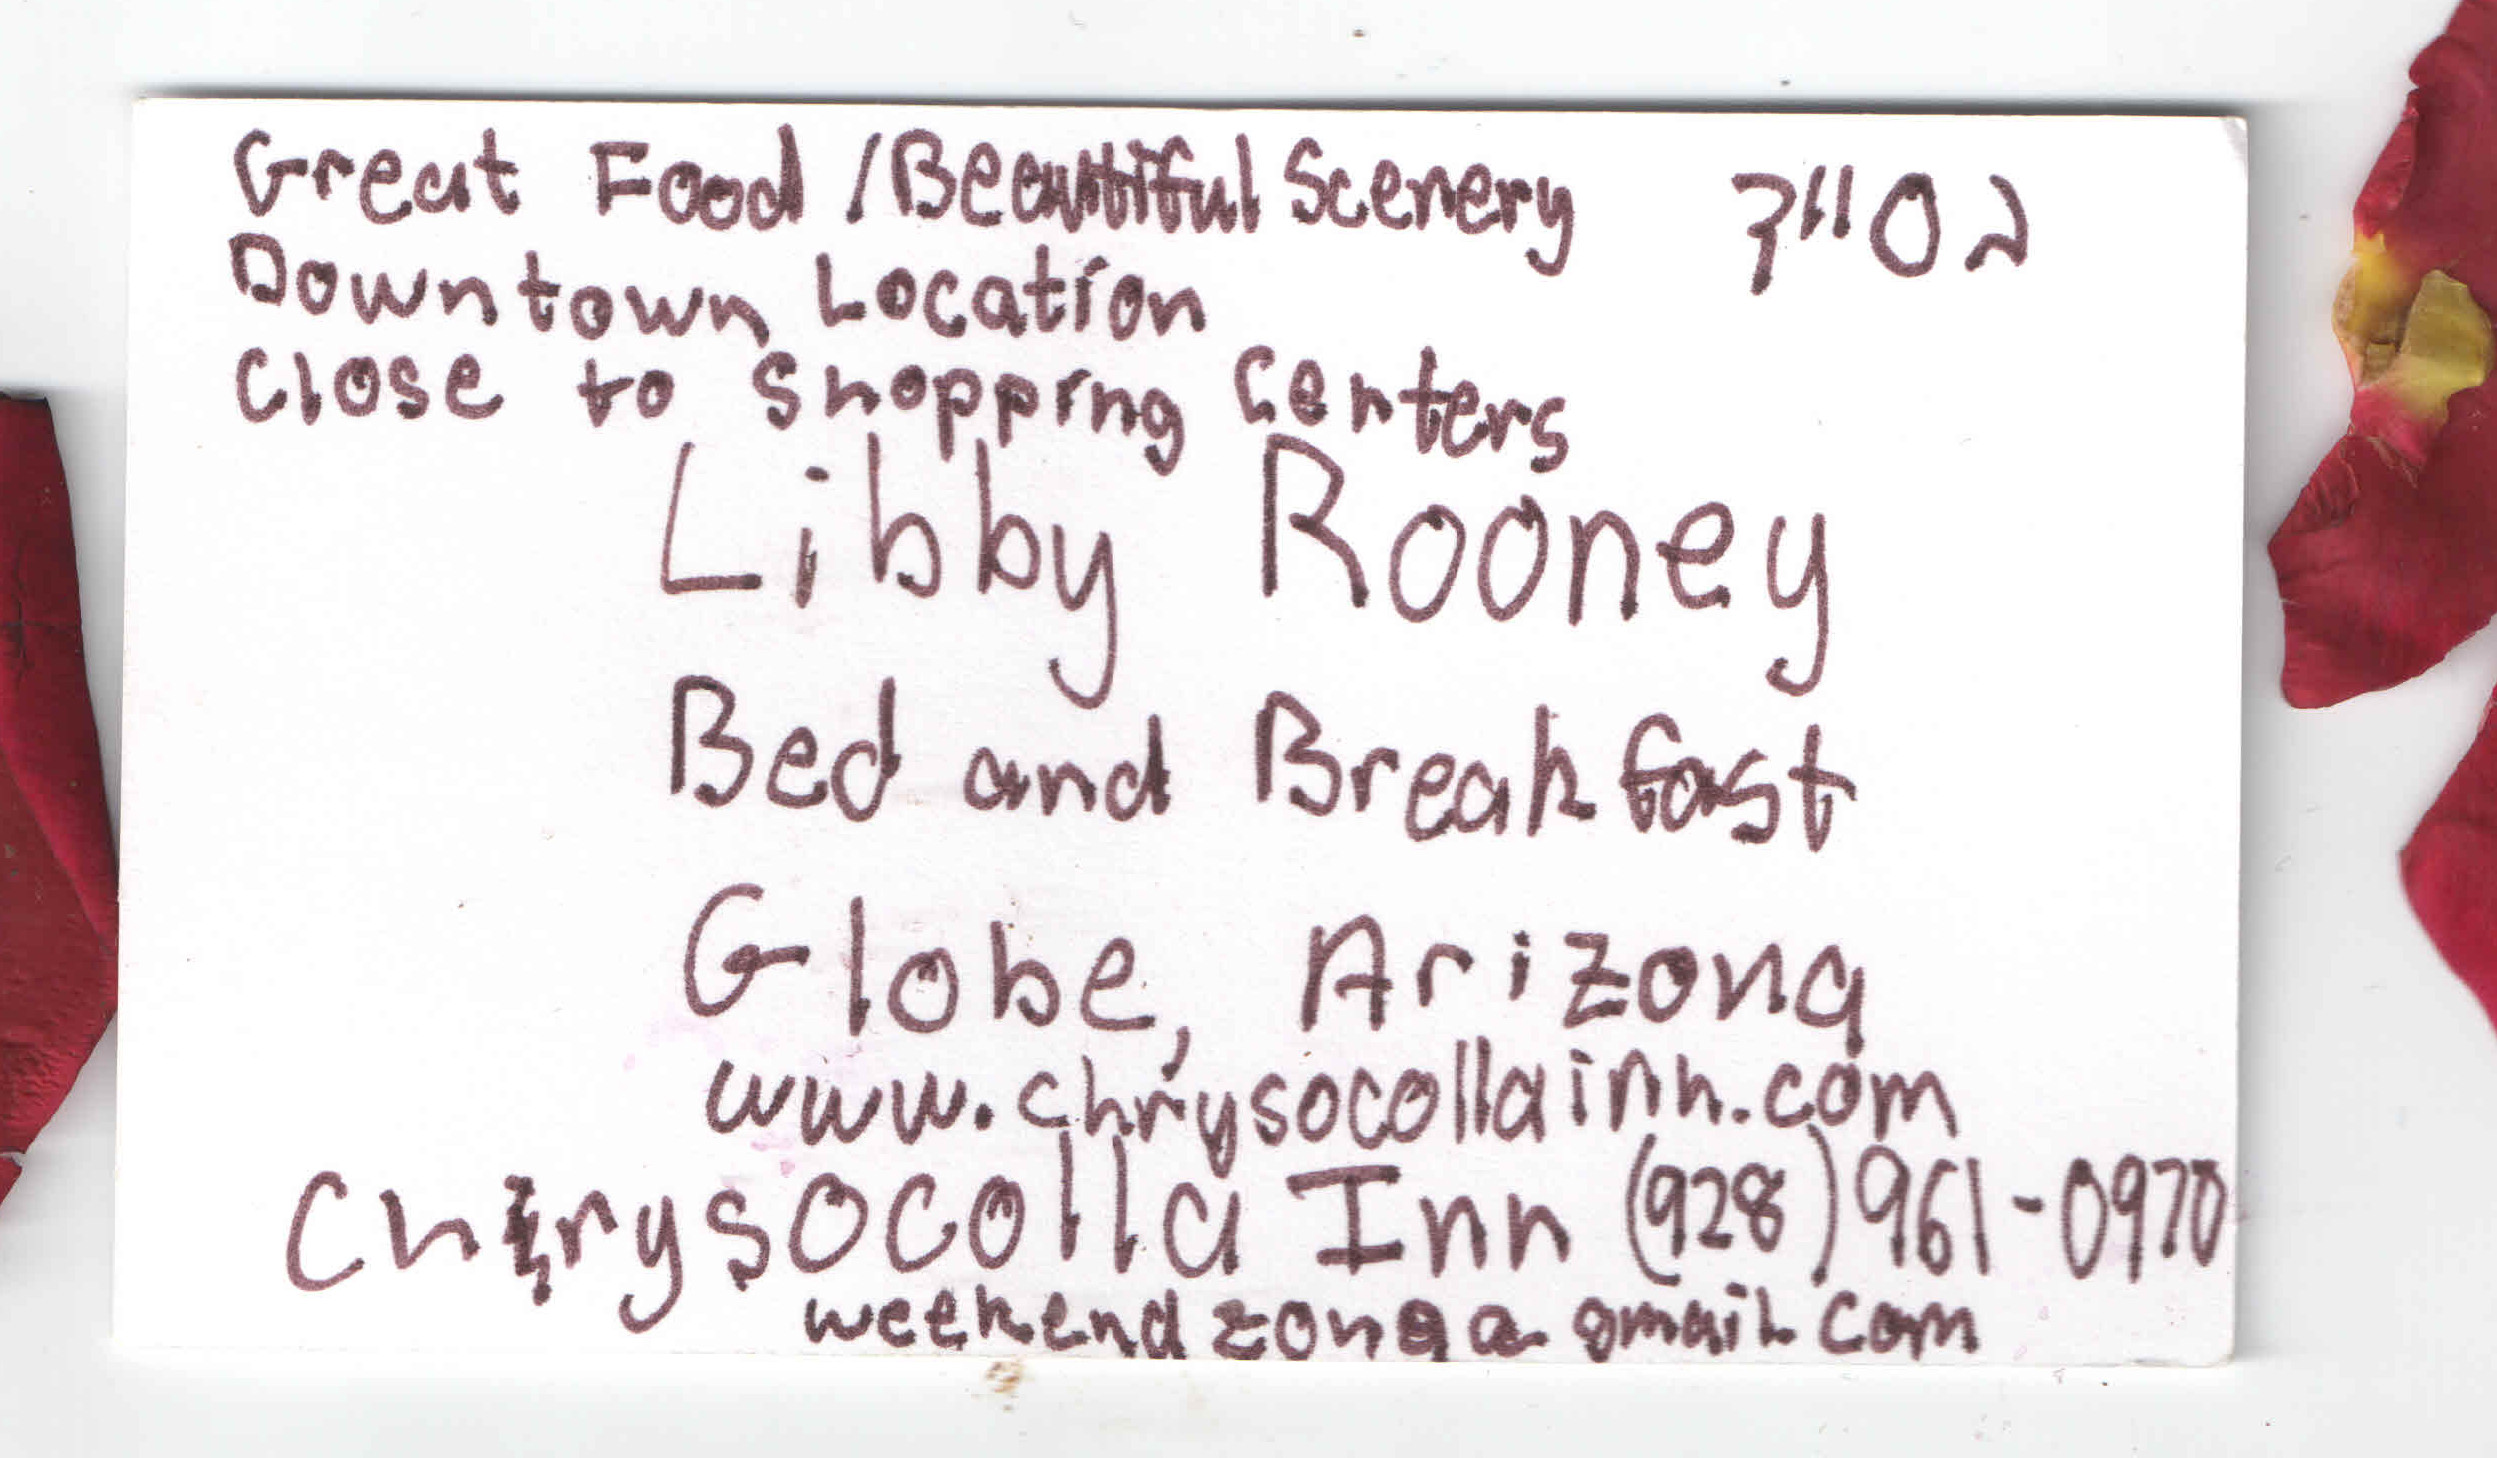 Great Food / Beautiful Scenery בס"ד
Downtown Location
Close to Shopping Centers
Libby Rooney
Bed and Breakfast
Globe, Arizona
www.chrysocollainn.com
Chrysocolla Inn (928) 961-0970
weekendzona@gmail.com